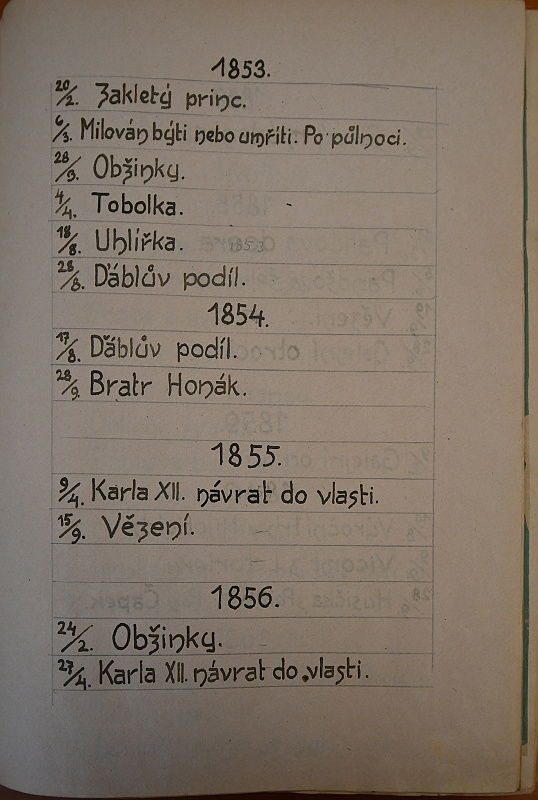 1853.
20/2. Zakletý princ.
6/3. Milován býti nebo umříti. Po půlnoci.
28/3. Obžinky.
4/4. Tobolka.
18/8. Uhlířka.
28/8. Ďáblův podíl.
1854.
17/8. Ďáblův podíl.
28/9. Bratr Honák.
1855.
9/4. Karla XII. návrat do vlasti.
15/9. Vězení.
1856.
24/2. Obžinky.
27/4. Karla XII. návrat do vlasti.